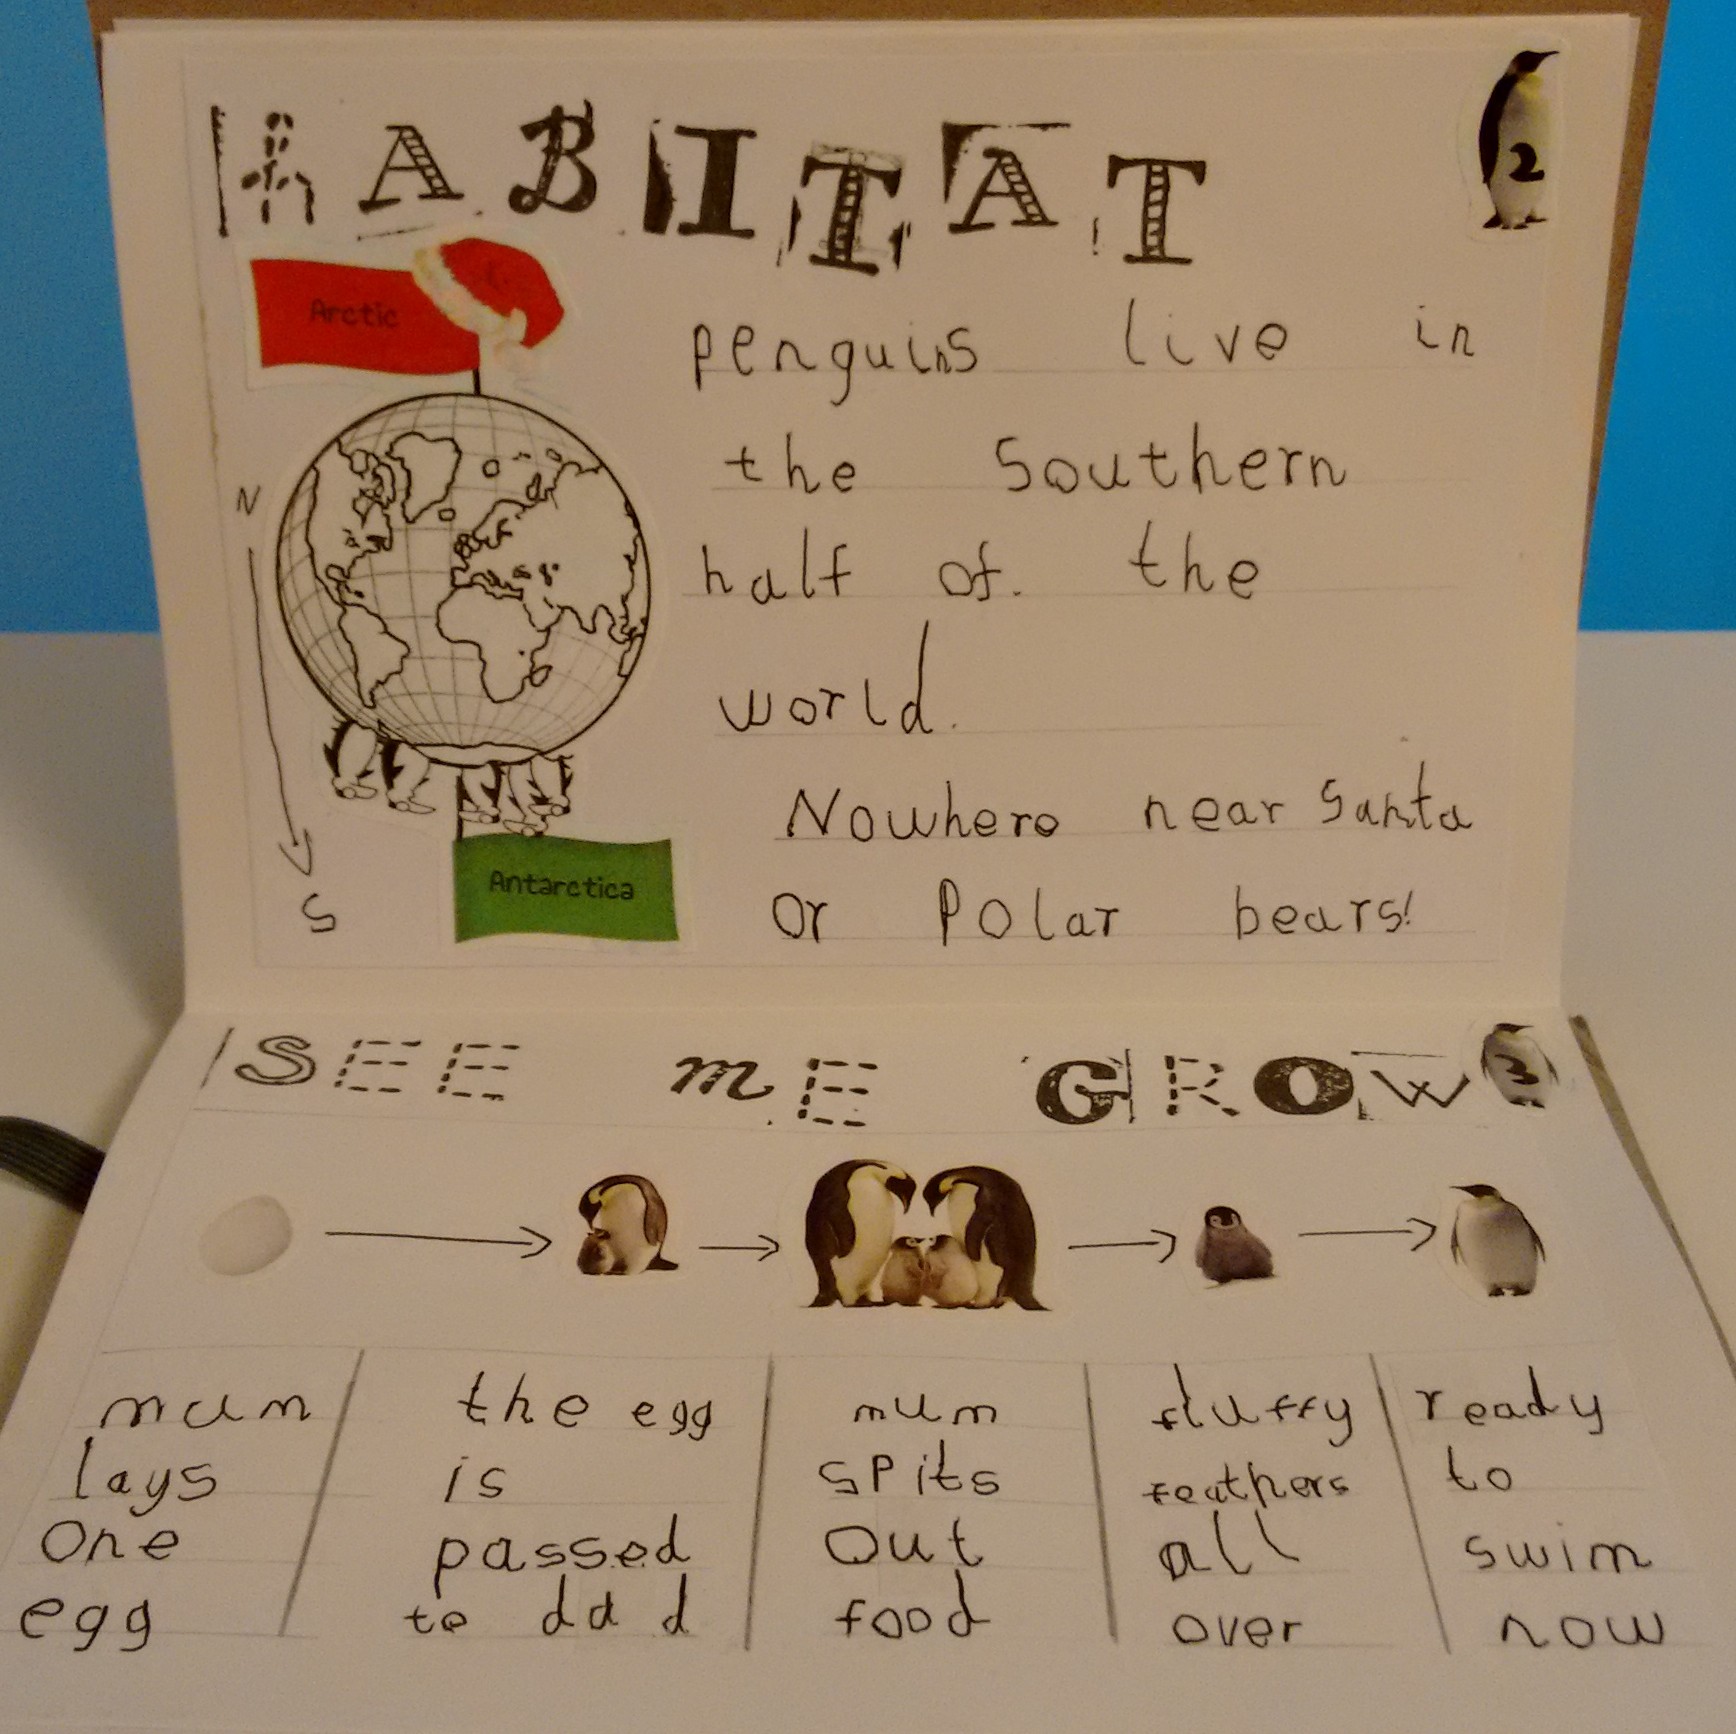 HABITAT
2
Arctic
penguins live in
the Southern
N
half of. the
world.
Nowhere near Santa
or Polar bears!
Antarctica
S
SEE ME GROW
3
mum
lays
One
egg
the egg
is
passed
to dad
mum
spits
Out
food
fluffy
feathers
all
over
ready
to
swim
now